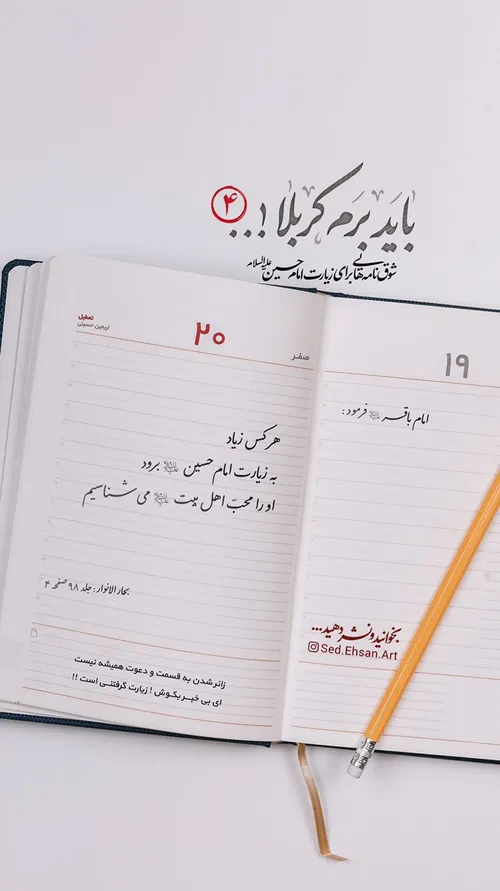 باید برم کربلا !...
۴
شوق نامه هایی برای زیارت امام حسین علیه‌السلام
۱۹
امام باقر ﷺ فرمود :
صفر
۲۰
تعطیل
اربعین حسینی
هر کس زیاد
به زیارت امام حسین برود
او را محبّ اهل بیت می شناسیم
بحار الانوار : جلد ۹۸ صفحه ۴
زائر شدن به قسمت و دعوت همیشه نیست
ای بی خبر بکوش ! زیارت گرفتنی است !!
بخوانید و نشر دهید...
Sed.Ehsan.Art